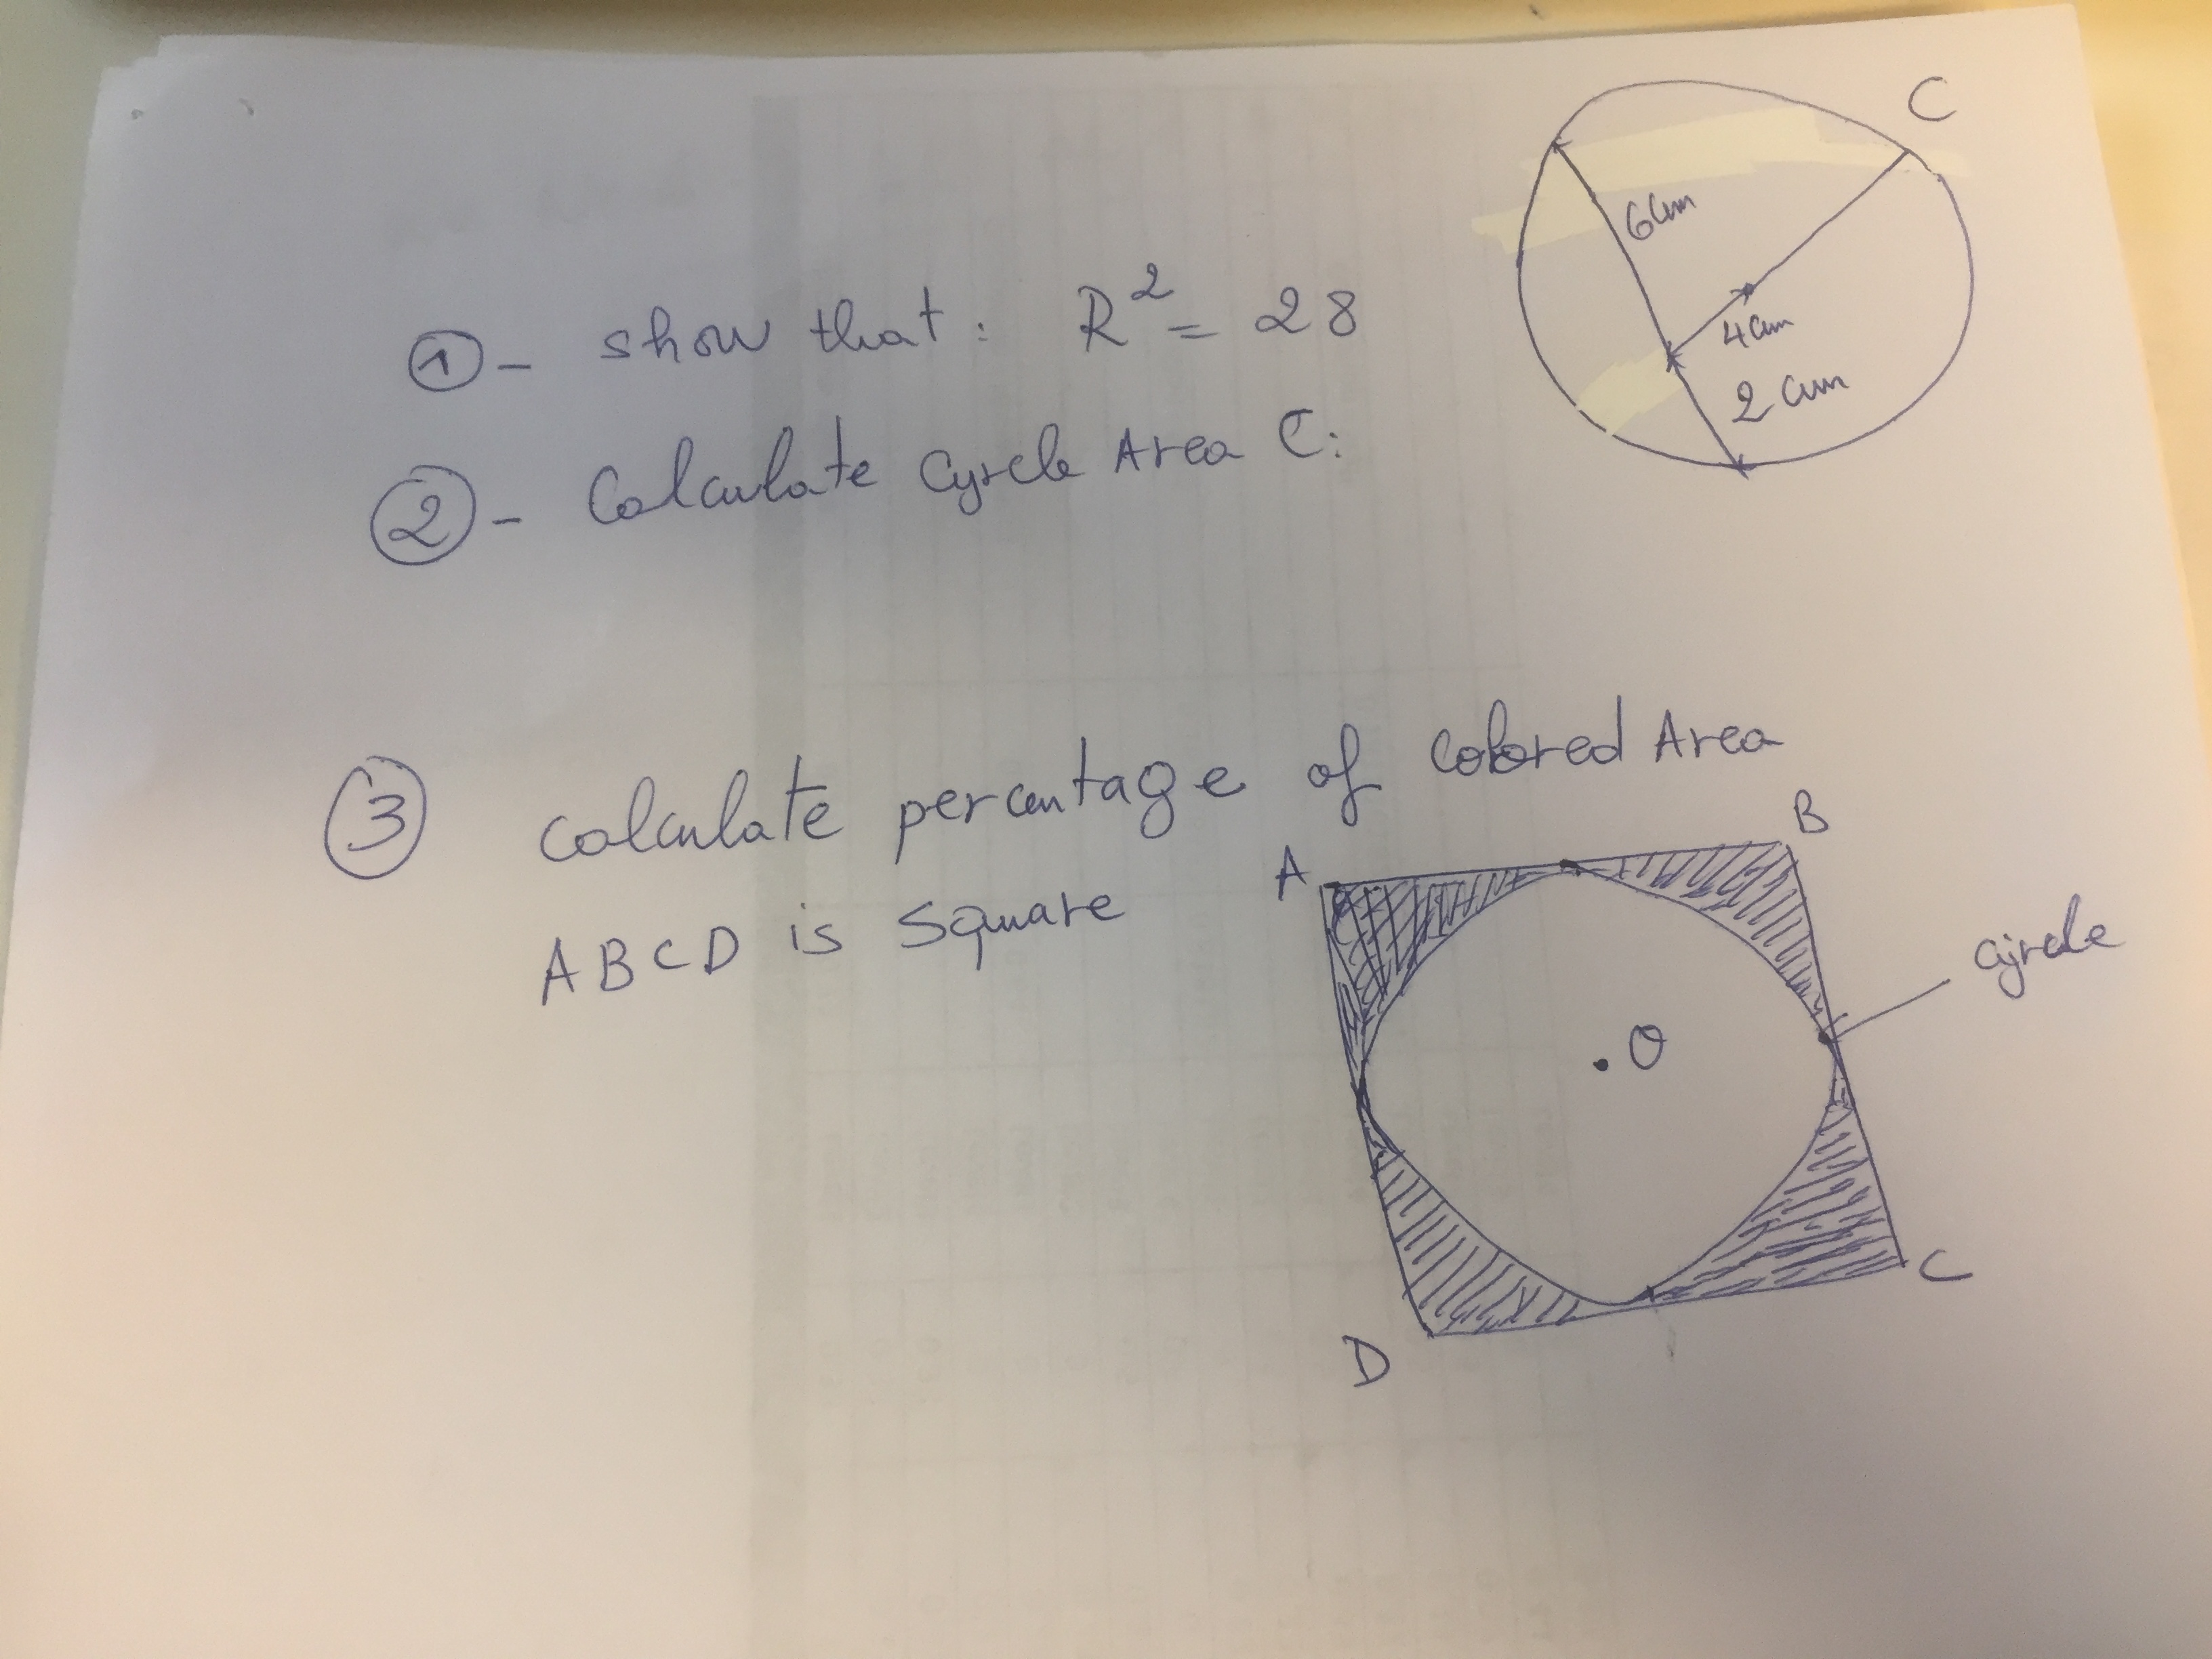 C
6cm
4cm
2 cm
①- show that: R² = 28
②- Calculate Cyrcle Area C:
③ Calculate percentage of Colored Area
ABCD is square
A
B
cyrcle
. O
C
D